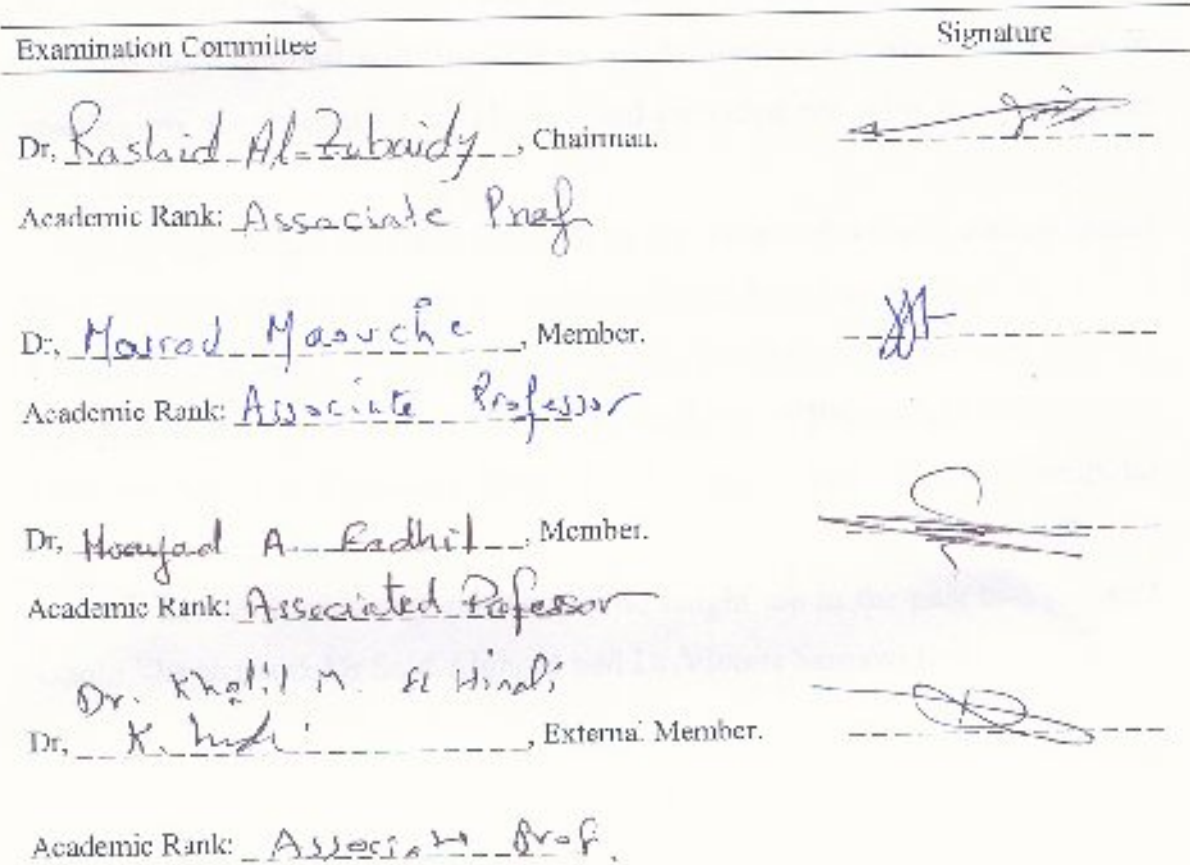 Examination Committee Signature
Dr. Rashid Al-Zubaidy, Chairman.
Academic Rank: Associate Prof
Dr. Mourad Maouche, Member.
Academic Rank: Associate Professor
Dr. Moayad A. Fadhil, Member.
Academic Rank: Associated Professor
Dr. Khalil M. el Hindi
Dr. K. , External Member.
Academic Rank: Prof.